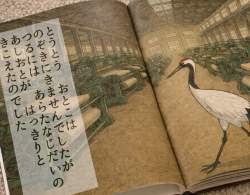 とうとう　おとこは
のぞきにきませんでしたが
つるには　あらたなじだいの
あしおとが　はっきりと
きこえたのでした